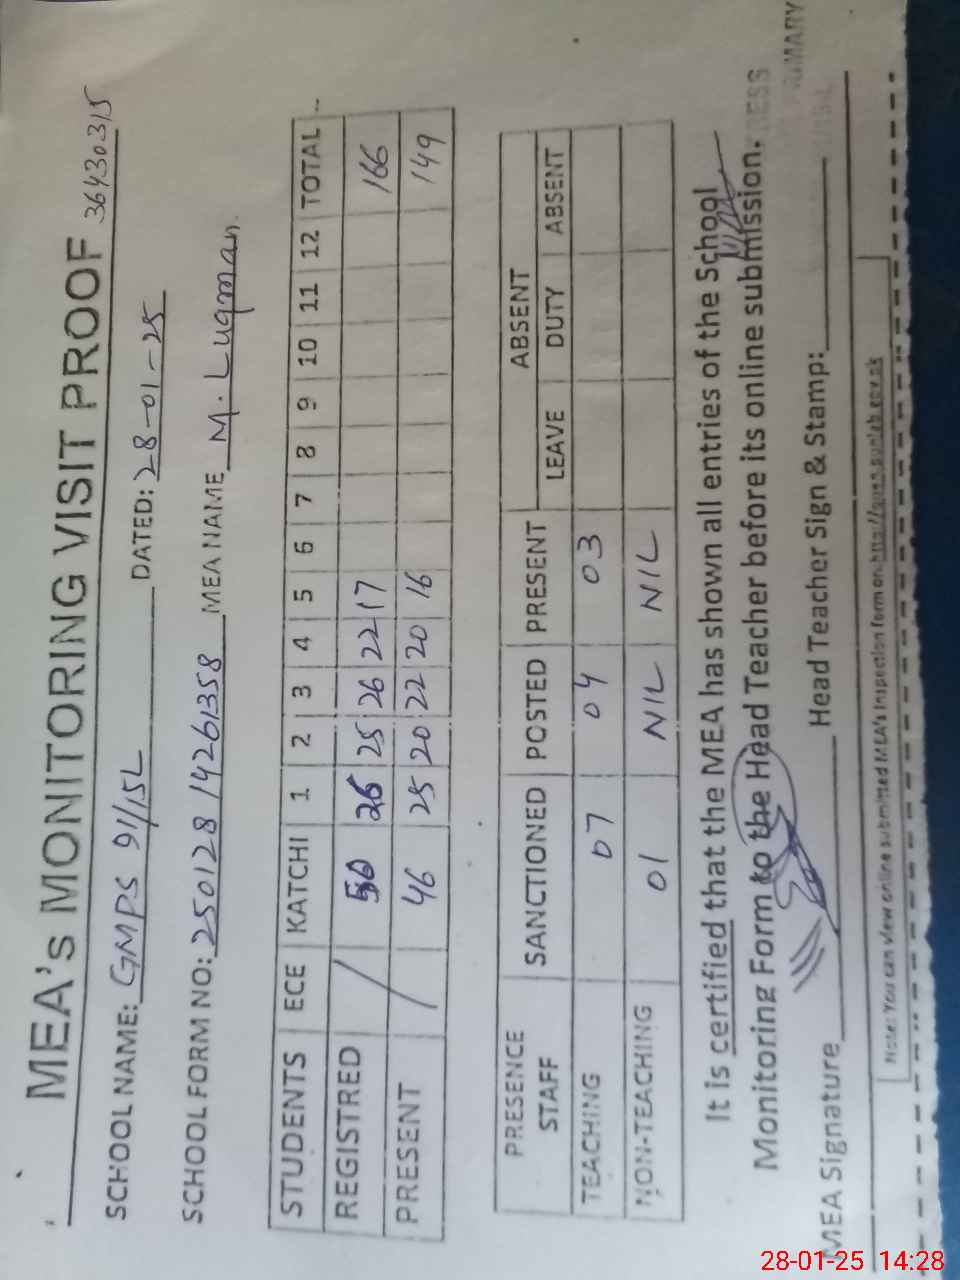 MEA's MONITORING VISIT PROOF 36430315
SCHOOL NAME: GMPS 91/15L DATED: 28-01-25
SCHOOL FORM NO: 250128 14261358 MEA NAME M. Luqman
STUDENTS ECE KATCHI 1 2 3 4 5 6 7 8 9 10 11 12 TOTAL
REGISTRED / 50 26 25 26 22 17 166
PRESENT / 46 25 20 22 20 16 149
PRESENCE STAFF SANCTIONED POSTED PRESENT ABSENT
LEAVE DUTY ABSENT
TEACHING 07 04 03
NON-TEACHING 01 NIL NIL
It is certified that the MEA has shown all entries of the School
Monitoring Form to the Head Teacher before its online submission.
MEA Signature Head Teacher Sign & Stamp:
Note: You can view online submitted MEA's inspection form on:
28-01-25 14:28